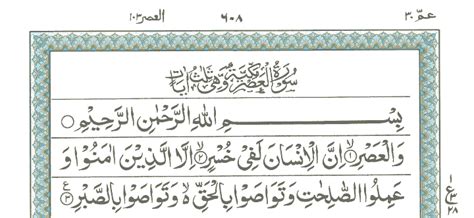 عمّ ۳۰ ۶۰۸ العصر ۱۰۳
سُوْرَةُ الْعَصْرِ مَكِّيَّةٌ وَّهِيَ ثَلٰثُ اٰيَاتٍ
بِسْمِ اللّٰهِ الرَّحْمٰنِ الرَّحِيْمِ ○
وَالْعَصْرِ ۙ﴿۱﴾ اِنَّ الْاِنْسَانَ لَفِيْ خُسْرٍ ۙ﴿۲﴾ اِلَّا الَّذِيْنَ اٰمَنُوْا وَ
عَمِلُوا الصّٰلِحٰتِ وَتَوَاصَوْا بِالْحَقِّ ۬ۙ وَتَوَاصَوْا بِالصَّبْرِ ﴿۳﴾ ع
۱
ع ۳
۲۸